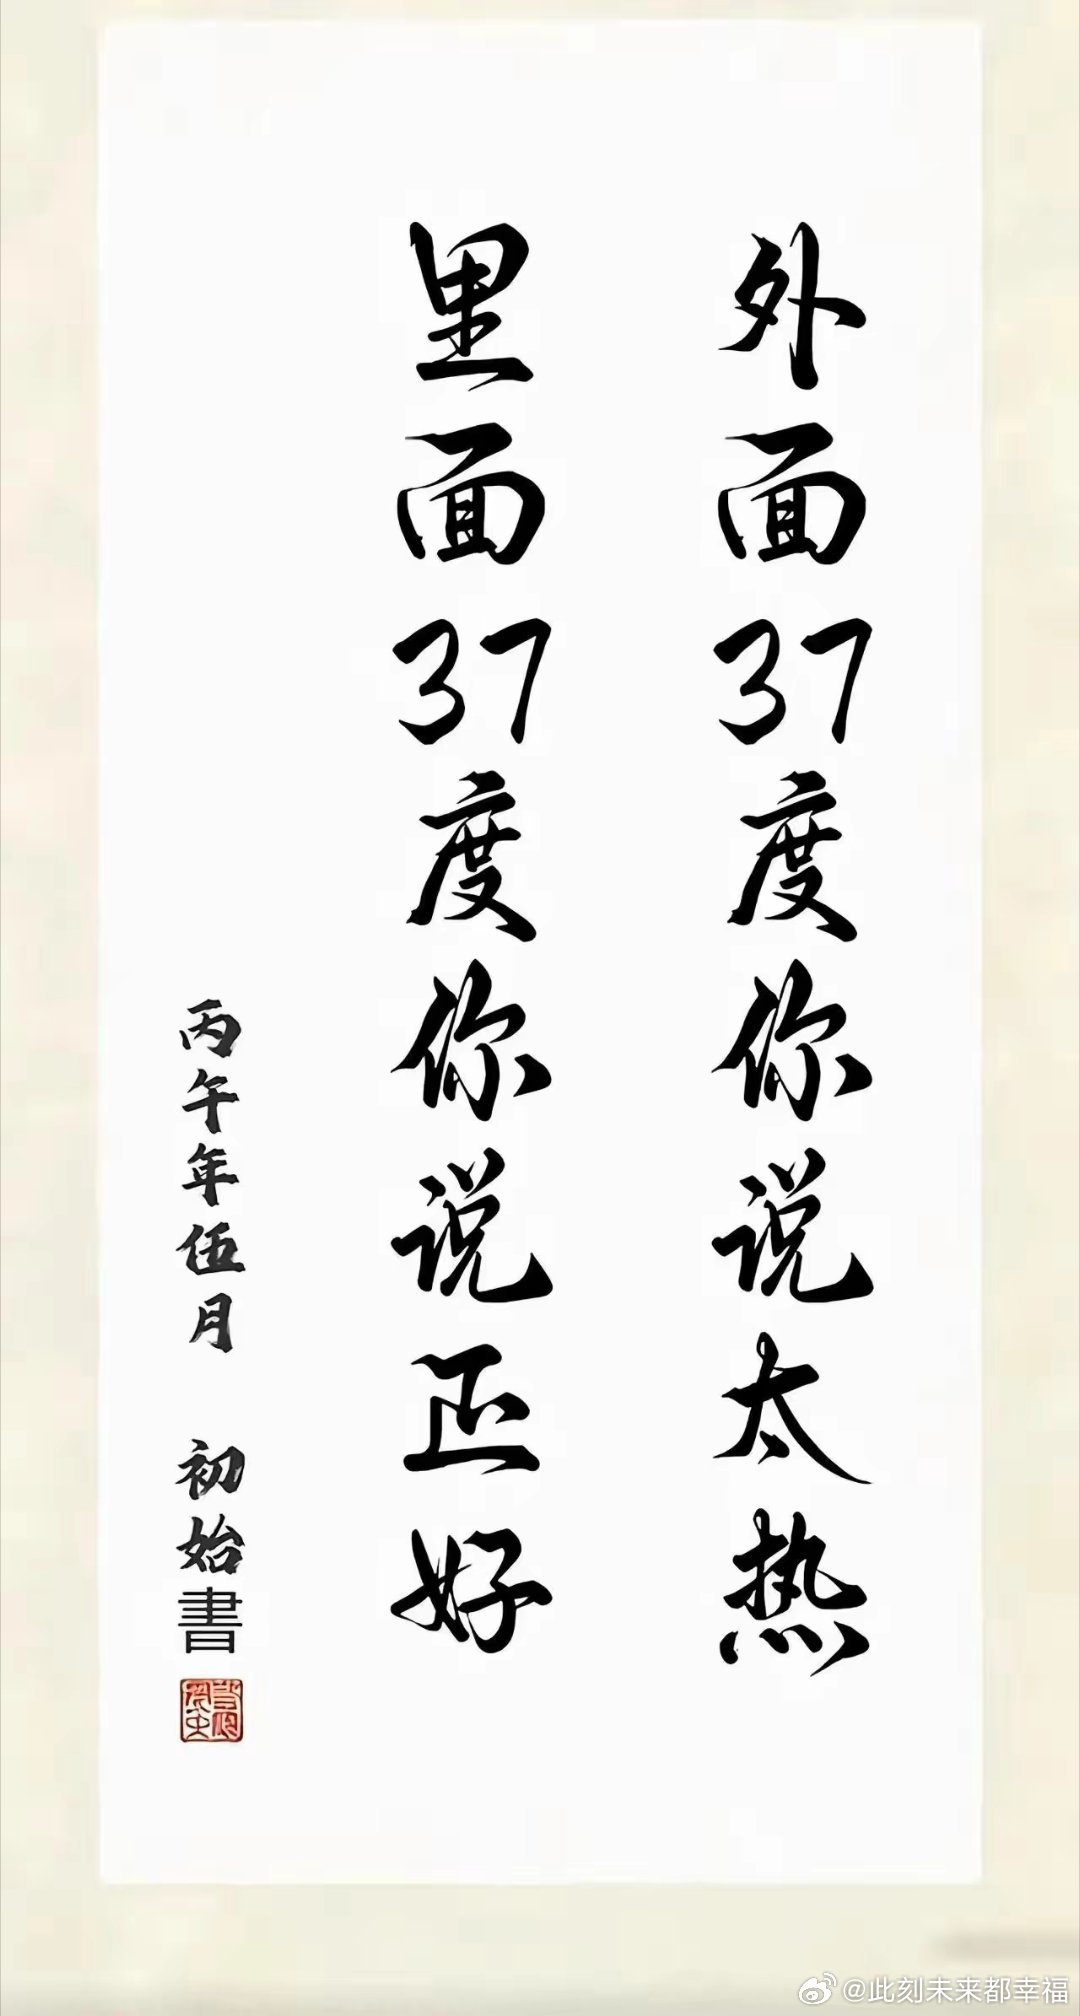 外面37度你说太热
里面37度你说正好
丙午年伍月 初始書
@此刻未来都幸福